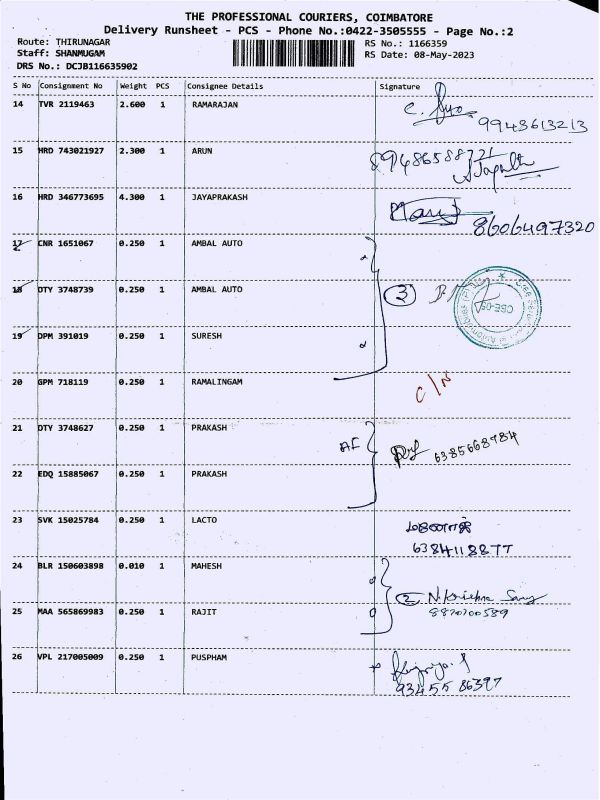 THE PROFESSIONAL COURIERS, COIMBATORE
Delivery Runsheet - PCS - Phone No.:0422-3505555 - Page No.:2
Route: THIRUNAGAR
RS No.: 1166359
Staff: SHANMUGAM
RS Date: 08-May-2023
DRS No.: DCJB116635902
S No Consignment No Weight PCS Consignee Details Signature
14 TVR 2119463 2.600 1 RAMARAJAN
9943613213
15 HRD 743021927 2.300 1 ARUN
16 HRD 346773695 4.300 1 JAYAPRAKASH
8606497320
17 CNR 1651067 0.250 1 AMBAL AUTO
18 DTY 3748739 0.250 1 AMBAL AUTO
3
CBE-05
19 DPM 391019 0.250 1 SURESH
20 GPM 718119 0.250 1 RAMALINGAM
C/N
21 DTY 3748627 0.250 1 PRAKASH
AF
6385668984
22 EDQ 15885067 0.250 1 PRAKASH
23 SVK 15025784 0.250 1 LACTO
6384118877
24 BLR 150603898 0.010 1 MAHESH
2 N.Krishna Samy
25 MAA 565869983 0.250 1 RAJIT
8870700589
26 VPL 217005009 0.250 1 PUSPHAM
93455 86397